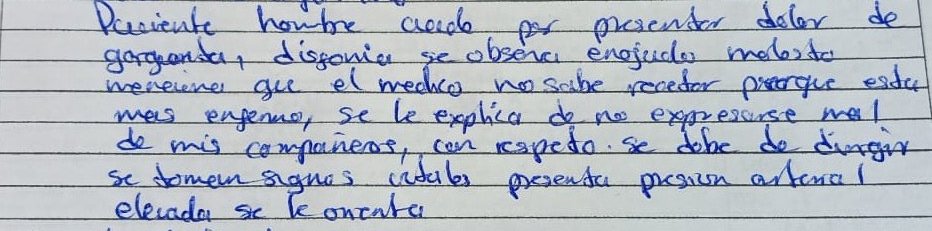 Paciente hombre acude por presentar dolor de
garganta, disfonia se observa enojado molesto
menciona que el medico no sabe recetar porque esta
mas enfermo, se le explica de no expresarse mal
de mis compañeros, con respeto. se debe de dirigir
se toman signos vitales presenta presion arterial
elevada se le orienta